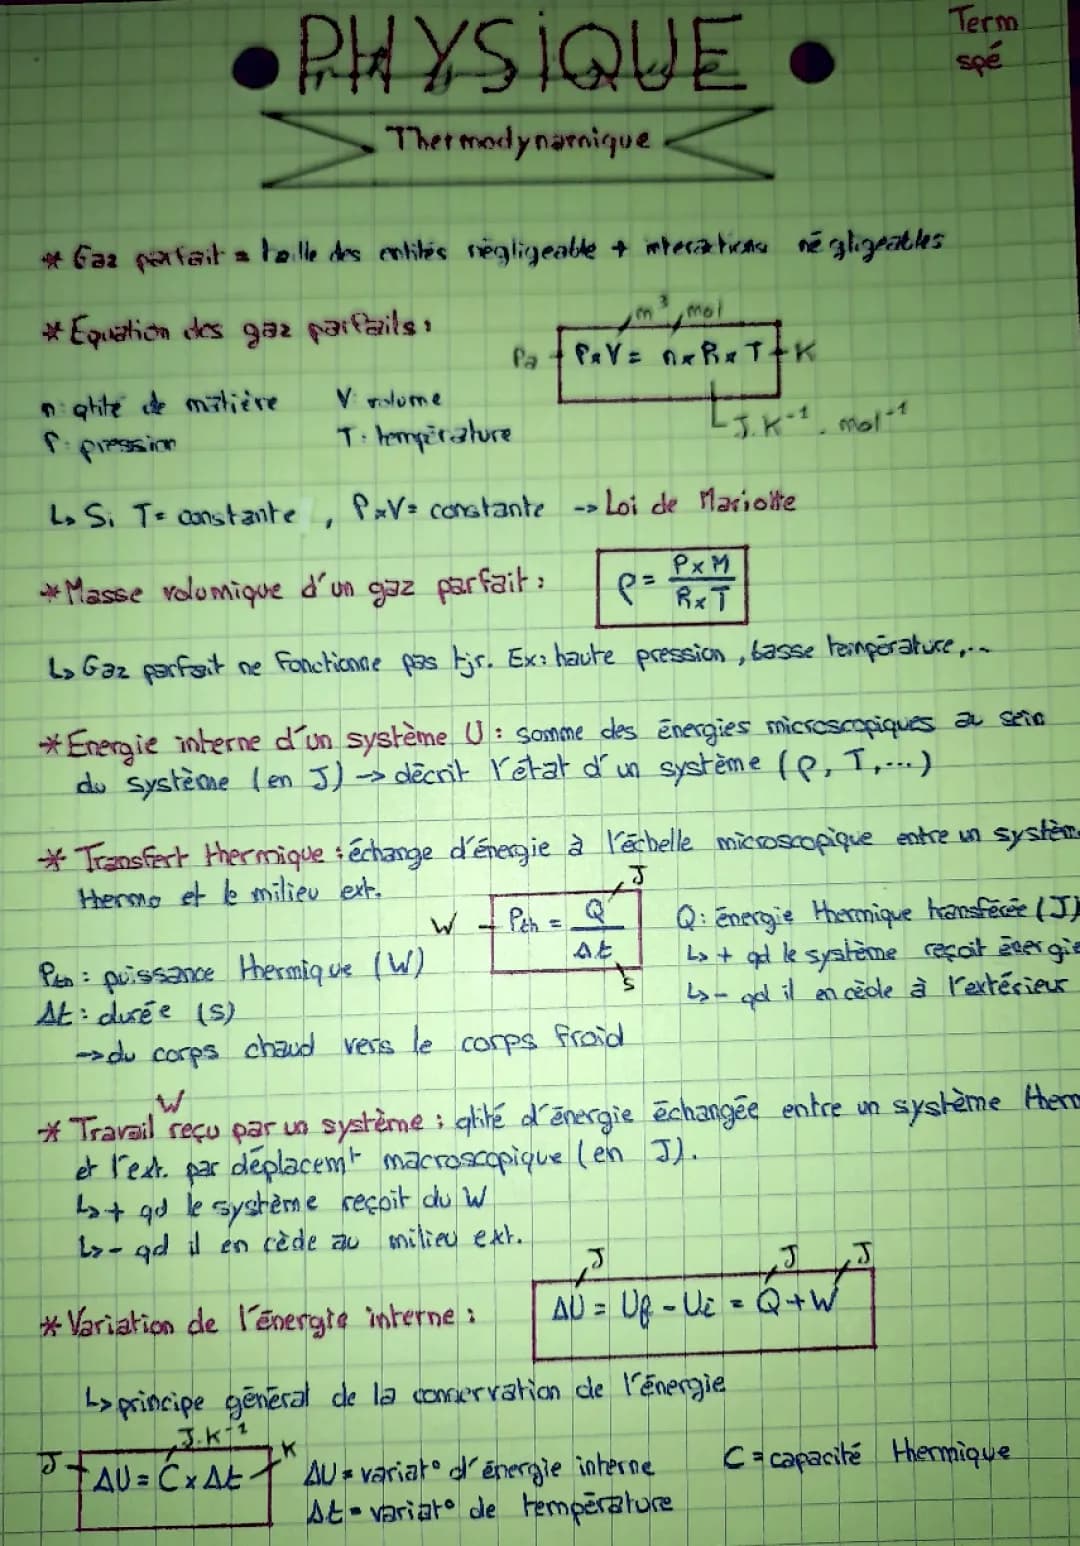 Term
spé
• PHYSIQUE •
Thermodynamique
* Gaz parfait = taille des entités négligeable + interactions négligeables
* Equation des gaz parfaits :
m³, mol
Pa P×V = n×R×T K
J.K⁻¹.mol⁻¹
n : qtité de matière V : volume
P : pression T : température
↳ Si T = constante, P×V = constante -> Loi de Mariotte
* Masse volumique d'un gaz parfait : ρ = P×M / R×T
↳ Gaz parfait ne fonctionne pas tjr. Ex : haute pression, basse température,...
* Energie interne d'un système U : somme des énergies microscopiques au sein
du système (en J) → décrit l'état d'un système (ρ, T,...)
* Transfert thermique : échange d'énergie à l'échelle microscopique entre un système
thermo et le milieu ext.
J
W Pth = Q / Δt
s
Q : énergie thermique transférée (J)
↳ + qd le système reçoit énergie
↳ - qd il en cède à l'extérieur
Pth : puissance thermique (W)
Δt : durée (s)
→ du corps chaud vers le corps froid
W
* Travail reçu par un système : qtité d'énergie échangée entre un système therm
et l'ext. par déplacemt macroscopique (en J).
↳ + qd le système reçoit du W
↳ - qd il en cède au milieu ext.
J J J
* Variation de l'énergie interne : ΔU = Uf - Ui = Q + W
↳ principe général de la conservation de l'énergie
J.K⁻¹
J ΔU = C × Δt K
ΔU = variat° d'énergie interne C = capacité thermique
Δt = variat° de température